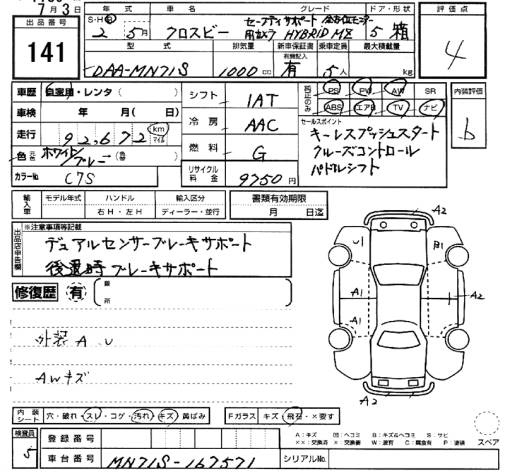 7月3日
出品番号
141
年式 車名 グレード ドア・形状
S・H・R 2年 5月 クロスビー セーフティサポート 全方位モニター用カメラ HYBRID MZ 5 箱
評価点
4
型式 排気量 新車保証書 有償記入 乗車定員 最大積載量
DAA-MN71S 1000cc 有 5人 kg
車歴 自家用・レンタ( )
車検 年 月( 日)
走行 92,672 km マイル
色 元色 ホワイト/ブルー(替 )
カラーNo C7S
シフト 1AT
冷房 AAC
燃料 G
リサイクル料金 9750円
純正のみ PS PW AW SR
ABS エアB TV ナビ
内装評価
b
セールスポイント
キーレスプッシュスタート
クルーズコントロール
パドルシフト
輸入車 モデル年式 ハンドル 輸入区分 書類有効期限
右H・左H ディーラー・並行 月 日迄
出品店申告欄 ※注意事項等記載
デュアルセンサーブレーキサポート
後退時ブレーキサポート
修復歴 有 箇所
外装 A U
AWキズ
A2
U1 B1
A1 A2
A1
A2
内装シート 穴・破れ・スレ・コゲ・汚れ・キズ・黄ばみ Fガラス キズ・飛石・×要す
検査員 5
登録番号
車台番号 MN71S-167571 シリアルNo.
A:キズ U:ヘコミ B:キズ&ヘコミ S:サビ
××:交換済 ×:交換 W:波 C:腐食 P:塗装
スペア